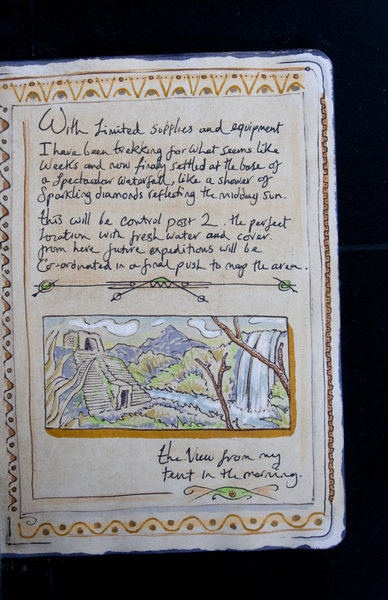 With Limited supplies and equipment
I have been trekking for what seems like
weeks and now finally settled at the base of
a spectacular waterfall, like a shower of
sparkling diamonds reflecting the midday sun.
this will be control post 2. the perfect
location with fresh water and cover.
from here future expeditions will be
Co-ordinated in a final push to map the area.
the view from my
tent in the morning.